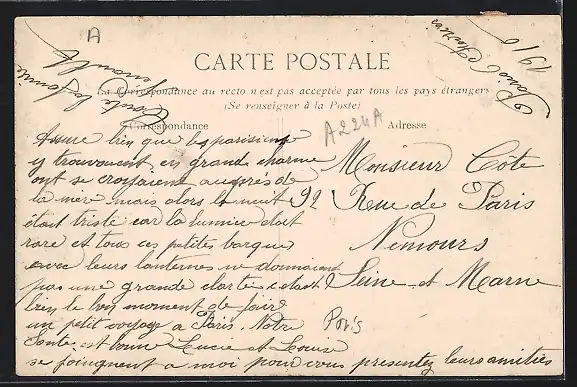 A
CARTE POSTALE
La Correspondance au recto n'est pas acceptée par tous les pays étrangers
(Se renseigner à la Poste)
Correspondance
Adresse
A224A
Fevrier
1910
toute la famille
Assure bien que les parisiens
y trouvaient un grand charme
ont se croyaient auprès de
la mer mais alors la nuit
était triste car la lumière était
rare et tous ces petites barques
avec leurs lanternes ne donnaient
pas une grande clarté c'etait
bien le bon moment de faire
un petit voyage a Paris. Notre
Sante est bonne Lucie et Louis
se joingnent a moi pour vous presentez leurs amitiés
Monsieur Cote
92 Rue de Paris
Nemours
Seine et Marne
Paris